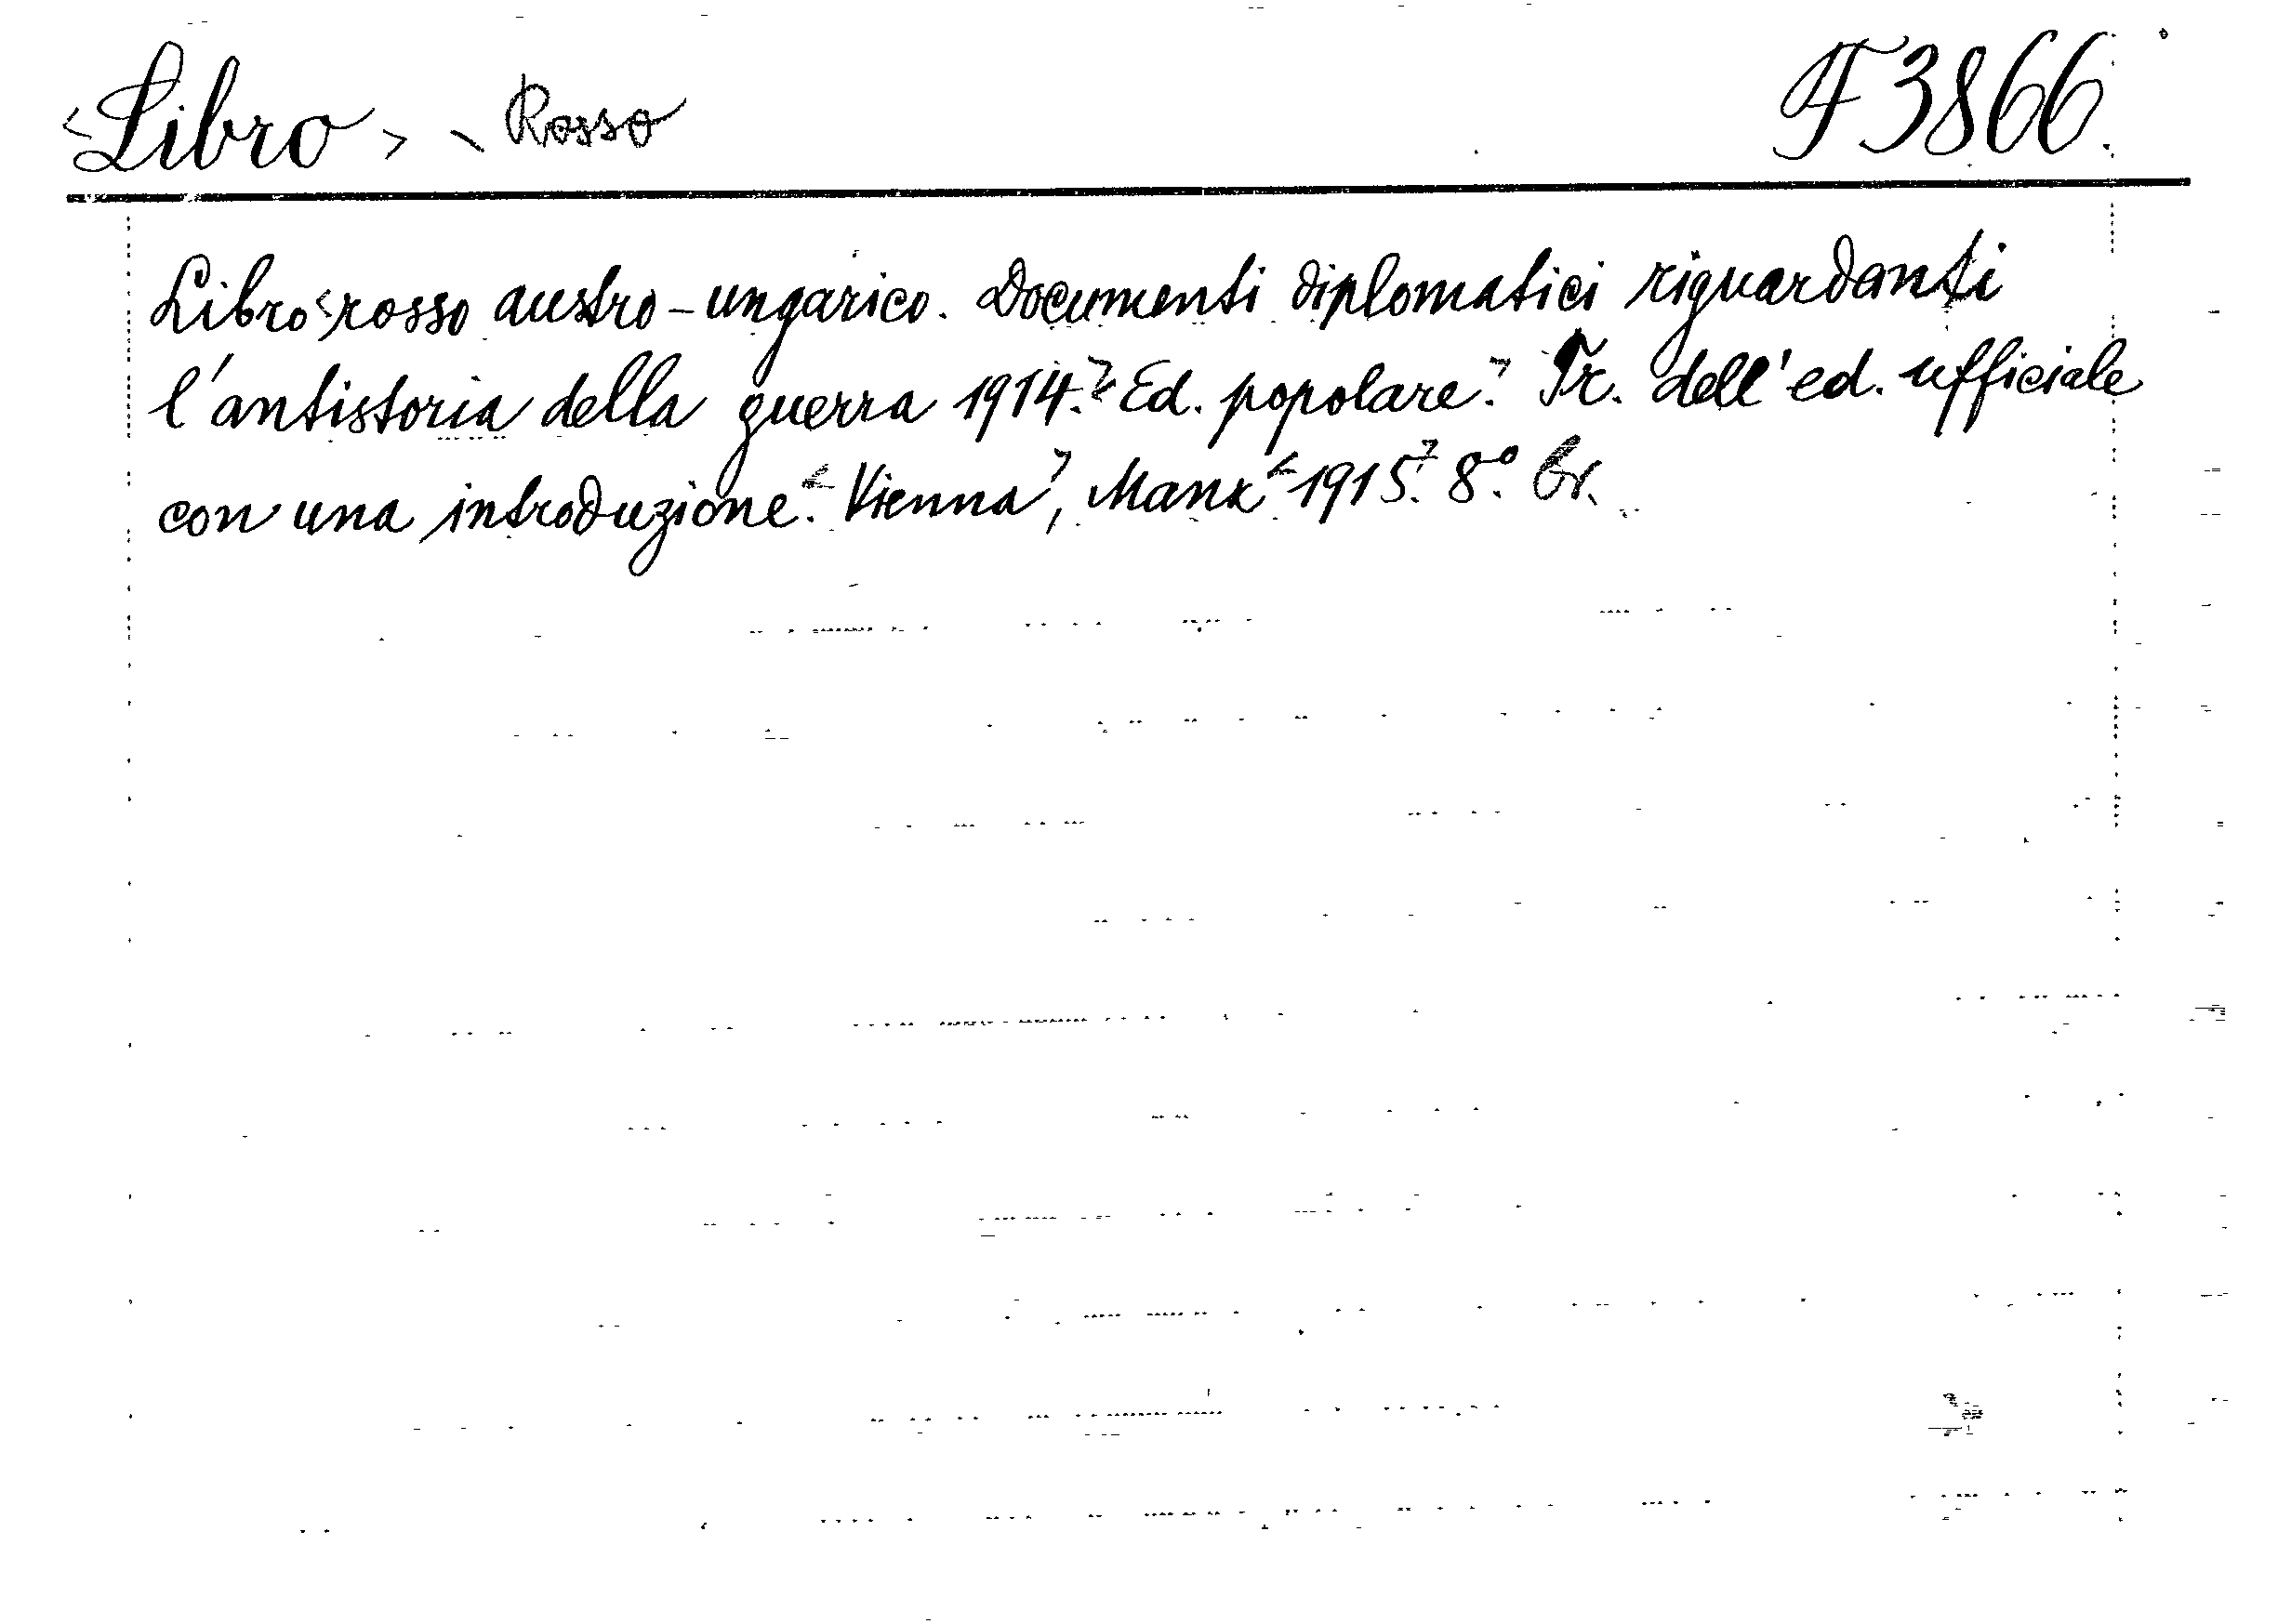 <Libro> \ Rosso F 3866.
Libro<rosso austro-ungarico. Documenti diplomatici riguardanti
l'antistoria della guerra 1914.> <Ed. popolare.> Tr. dell'ed. ufficiale
con una introduzione.< Vienna>, Manz< 1915.> 8.° br.